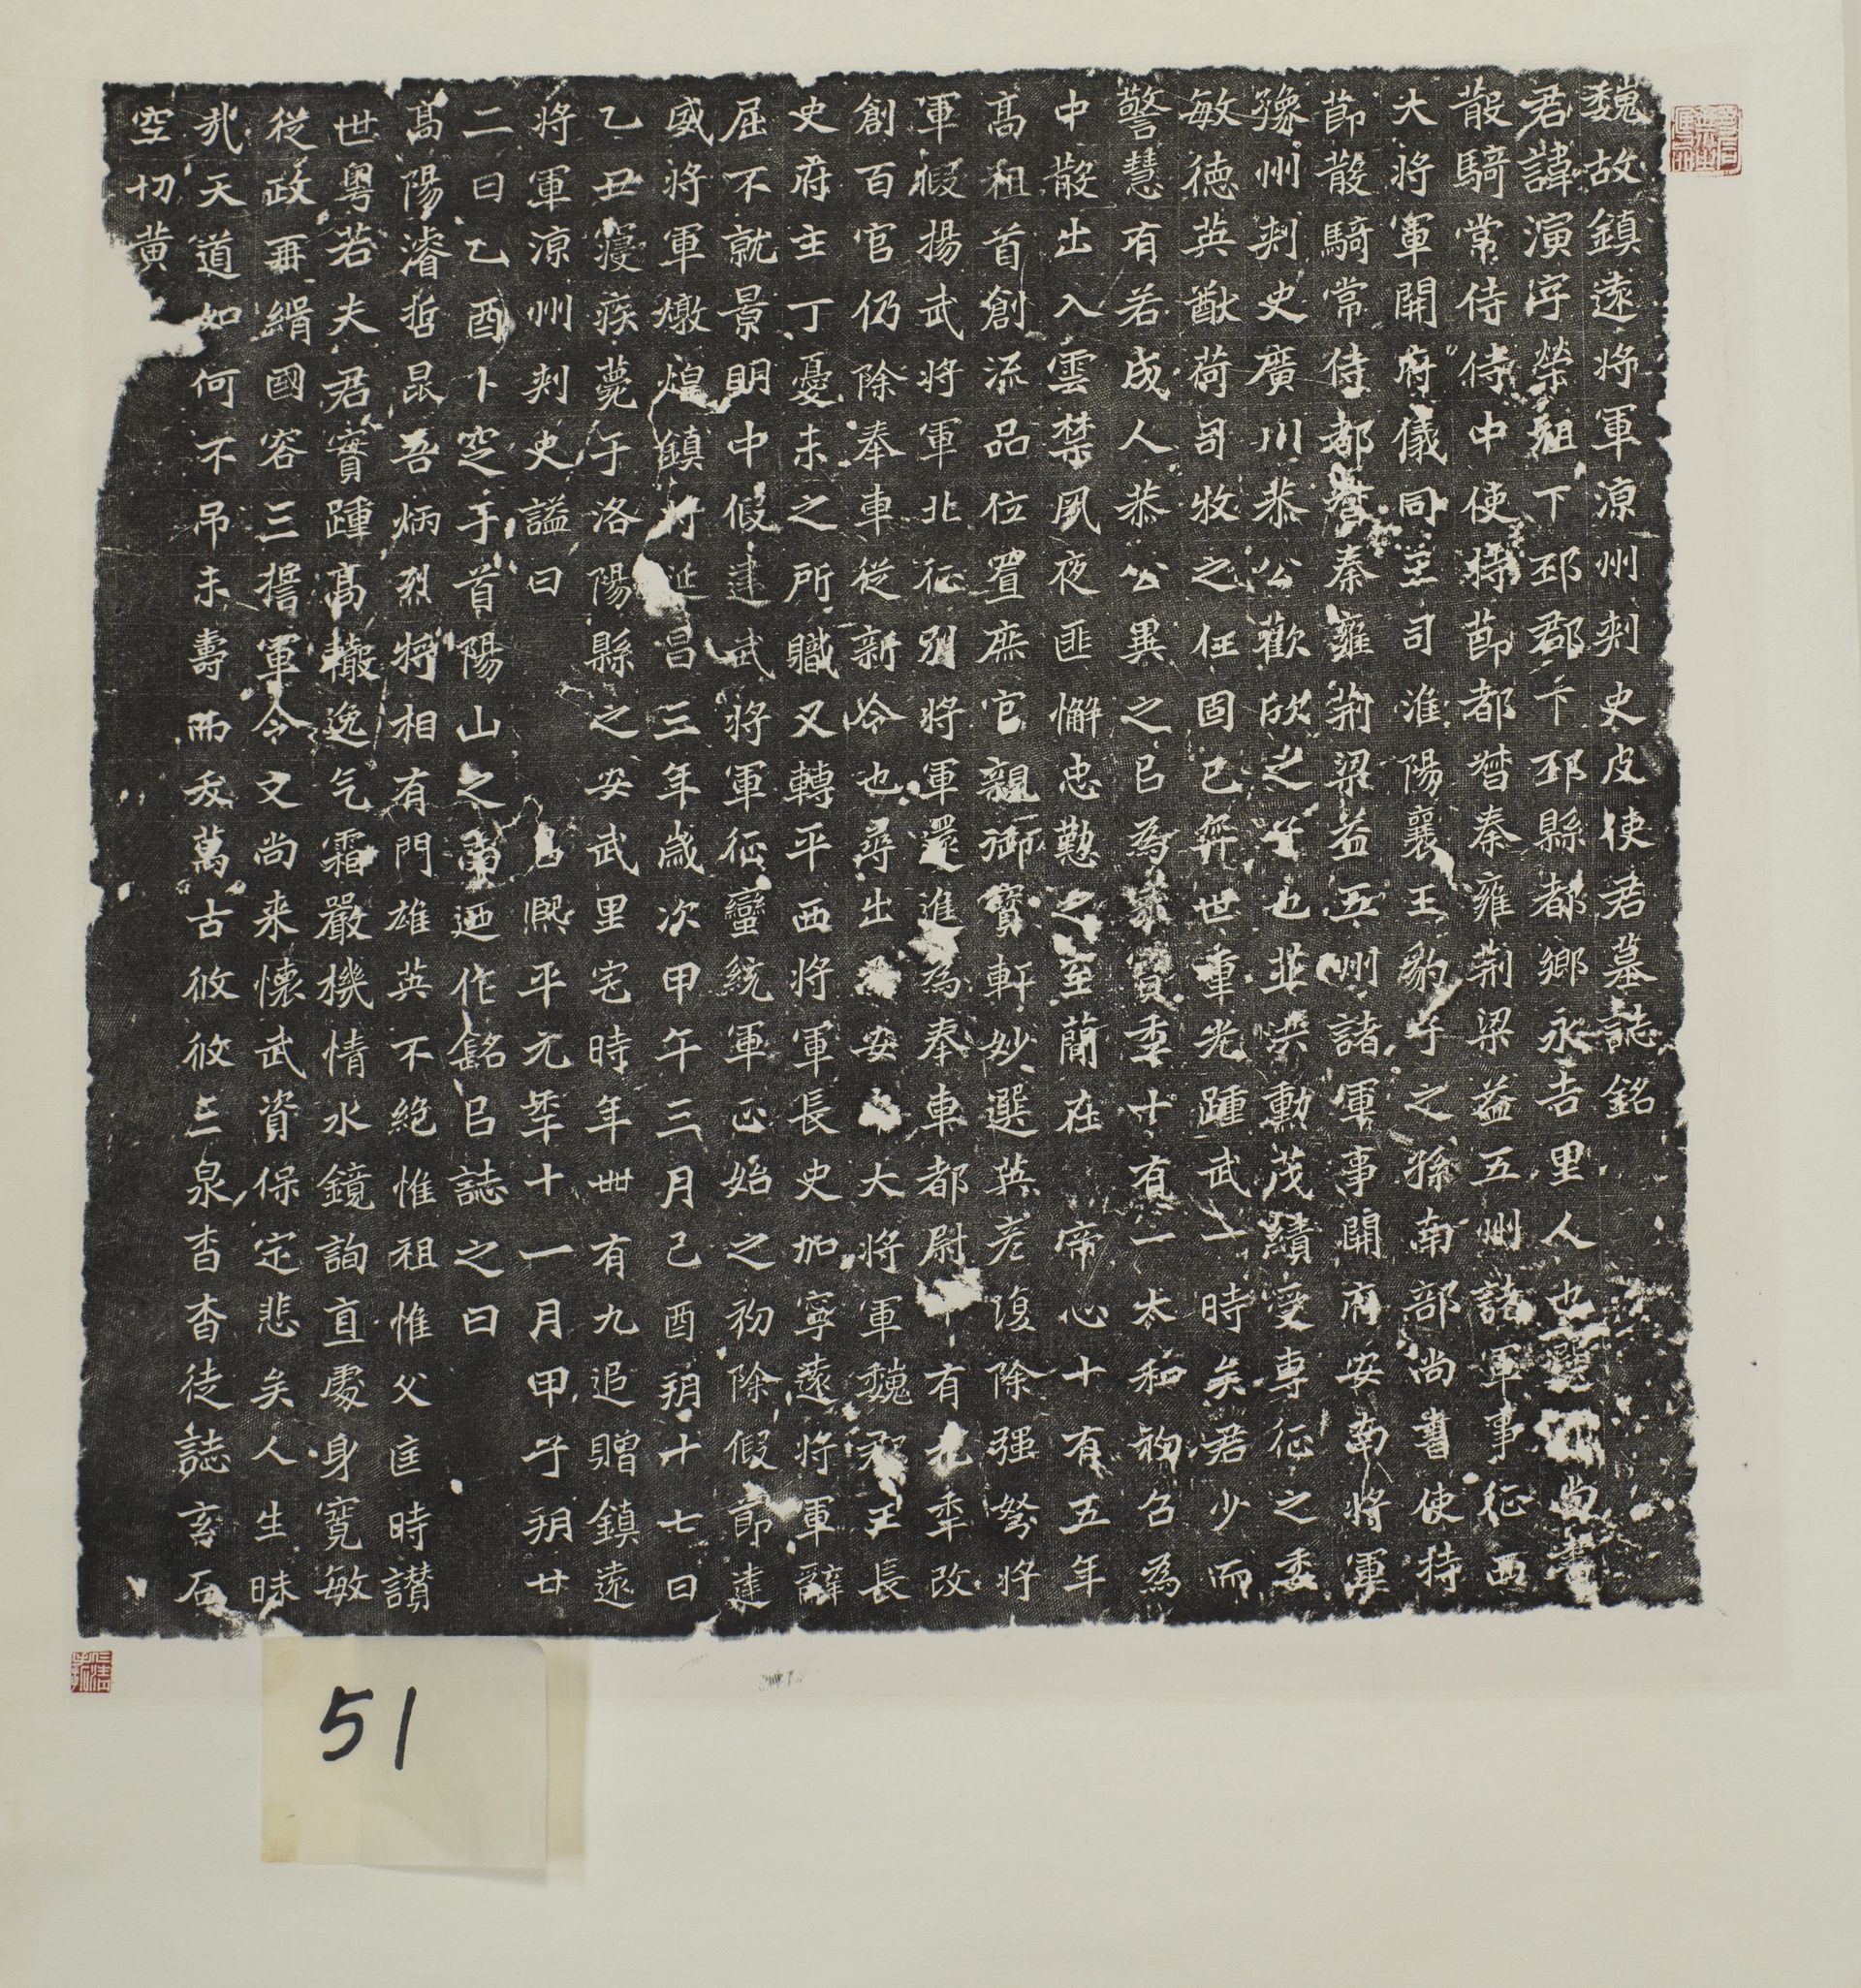 魏故鎮遠將軍涼州刾史皮使君墓誌銘
君諱演字榮祖下邳郡下邳縣都鄉永吉里人也尚書
散騎常侍侍中使持莭都督秦雍荆梁益五州諸軍事征西
大將軍開府儀同三司淮陽襄王豹子之孫南部尚書使持
莭散騎常侍都督秦雍荆梁益五州諸軍事開府安南將軍
豫州刾史廣川恭公歡欣之子也並柒勳茂績受專征之委
敏德英猷荷司牧之任固已弈世重光踵武一時矣君少而
警慧有若成人恭公異之已為家寶季十有一太和初召為
中散出入雲禁夙夜匪懈忠懃之至蕳在帝心十有五年
髙祖首創流品位置庶官親御寳軒妙選英彦復除强弩將
軍假揚武將軍北征別將軍還進為奉車都尉十有九秊改
創百官仍除奉車從新令也尋出為安大將軍魏王長
史府主丁憂未之所職又轉平西將軍長史加寧遠將軍辭
屈不就景明中假建武將軍征蠻統軍正始之初除假莭建
威將軍燉煌鎮將延昌三年歲次甲午三月己酉朔十七日
乙丑寑疾薨于洛陽縣之安武里宅時年卌有九追贈鎮遠
將軍涼州刾史謚曰熙平元年十一月甲子朔廿
二日乙酉卜窆于首陽山之南迺作銘㠯誌之曰
髙陽濬哲昆吾炳烈將相有門雄英不絶惟祖惟父匡時讃
世粤若夫君實踵髙轍逸气霜嚴機情水鏡詢直處身寛敏
從政再緝國容三揩軍令文尚来懷武資保定悲矣人生昧
㢤天道如何不吊未壽而夭萬古攸攸三泉杳杳徒誌玄石
空切黄
51